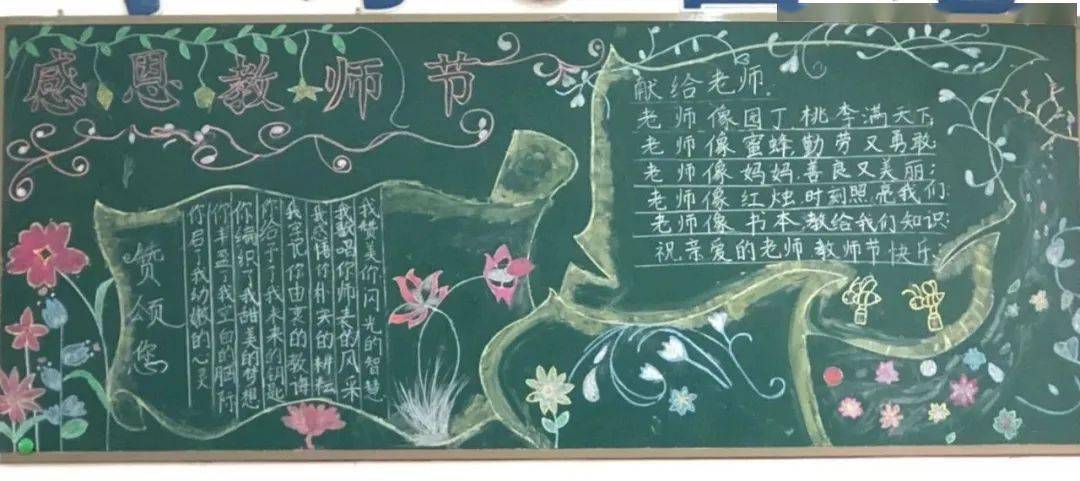 感恩教师节
赞颂您
我赞美你闪光的智慧
我歌唱你师表的风采
我感悟你朴实的耕耘
我牢记你由衷的教诲
你给予了我未来的钥匙
你编织了我甜美的梦想
你丰盈了我空白的脑际
你启了我幼嫩的心灵
献给老师.
老师像园丁,桃李满天下;
老师像蜜蜂,勤劳又勇敢;
老师像妈妈,善良又美丽;
老师像红烛,时刻照亮我们;
老师像书本,教给我们知识;
祝亲爱的老师教师节快乐;